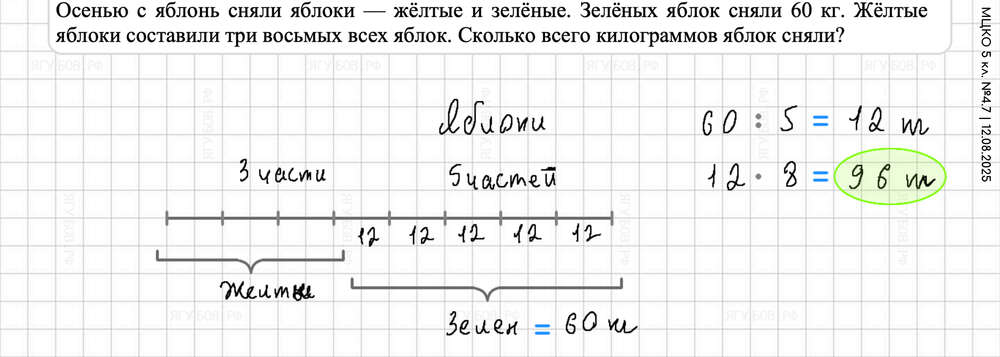 Осенью с яблонь сняли яблоки — жёлтые и зелёные. Зелёных яблок сняли 60 кг. Жёлтые
яблоки составили три восьмых всех яблок. Сколько всего килограммов яблок сняли?
МЦКО 5 кл. №4.7 | 12.08.2025
ЯГУБОВ.РФ
Яблоки
60 : 5 = 12 кг
3 части
5 частей
12 · 8 = 96 кг
12 12 12 12 12
Желтые
Зелен = 60 кг
ЯГУБОВ.РФ